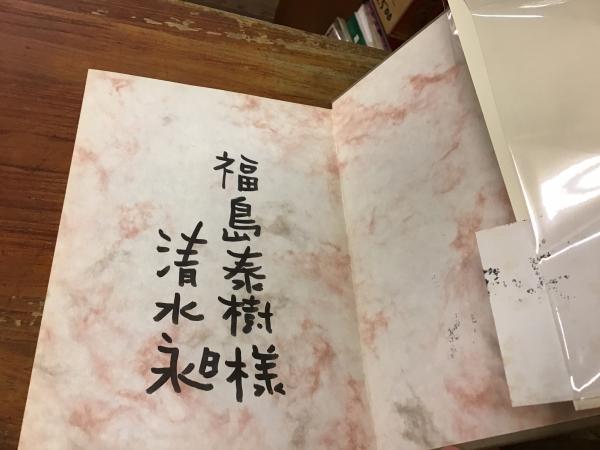 福島泰樹様
清水昶